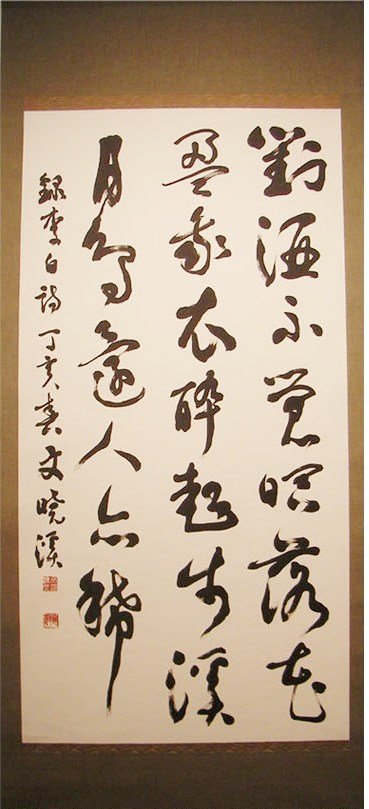 對酒不覺暝落花
盈我衣醉起步溪
月鳥還人亦稀
錄李白詩丁亥春文曉溪